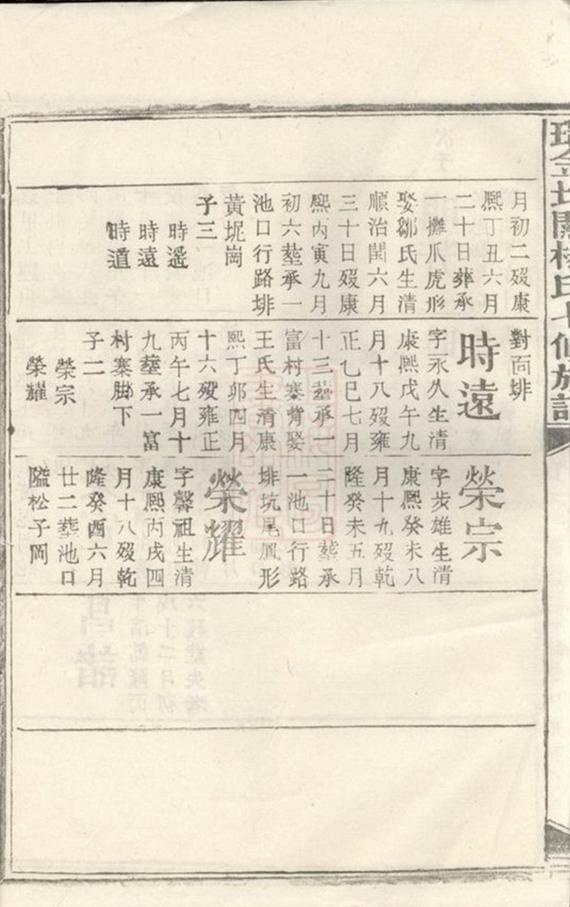 月初二殁康
熙丁丑六月
二十日葬承
一攤爪虎形
娶鄒氏生清
順治閏六月
三十日殁康
熙丙寅九月
初六塟承一
池口行路埱
黃坭崗
子三
時遙
時遠
時道
對面埱
時遠
字永久生清
康熙戊午九
月十八殁雍
正乙巳七月
十三塟承一
富村寨背娶
王氏生清康
熙丁卯四月
十六殁雍正
丙午七月十
九塟承一富
村寨脚下
子二
榮宗
榮耀
榮宗
字步雄生清
康熙癸未八
月十九殁乾
隆癸未五月
二十日塟承
池口行路
埱坑尾鳳形
榮耀
字馨祖生清
康熙丙戌四
月十八殁乾
隆癸酉六月
廿二塟池口
隘松子岡